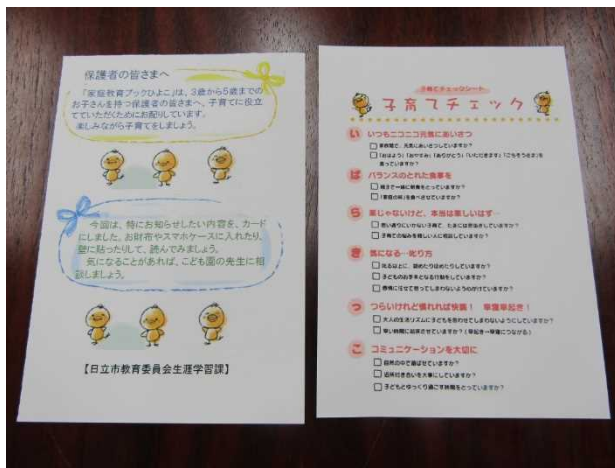 保護者の皆さまへ
「家庭教育ブックひよこ」は、3歳から5歳までの
お子さんを持つ保護者の皆さまへ、子育てに役立
てていただくためにお配りしています。
楽しみながら子育てをしましょう。
今回は、特にお知らせしたい内容を、カード
にしました。お財布やスマホケースに入れたり、
壁に貼ったりして、読んでみましょう。
気になることがあれば、こども園の先生に相
談しましょう。
【日立市教育委員会生涯学習課】
子育てチェックシート
子育てチェック
い いつもニコニコ元気にあいさつ
□家族間で、元気にあいさつしていますか?
□「おはよう」「おやすみ」「ありがとう」「いただきます」「ごちそうさま」を
言っていますか?
ば バランスのとれた食事を
□親子で一緒に朝食をとっていますか?
□「季節の味」を食べさせていますか?
ら 楽じゃないけど、本当は楽しいはず…
□思い通りにいかない子育て、たまには息抜きしていますか?
□子育ての悩みを親しい人に相談していますか?
き 気になる…叱り方
□叱るほどに、認めたりほめたりしていますか?
□子どものお手本となる行動をしていますか?
□感情に任せて怒ってしまわないよう心がけていますか?
っ つらいけれど慣れれば快調! 早寝早起き!
□大人の生活リズムに子どもを合わせてしまわないようにしていますか?
□早い時間に起床させていますか?(早起き→早寝につながる)
こ コミュニケーションを大切に
□自然の中で遊ばせていますか?
□近所付き合いを大事にしていますか?
□子どもとゆっくり過ごす時間をとっていますか?